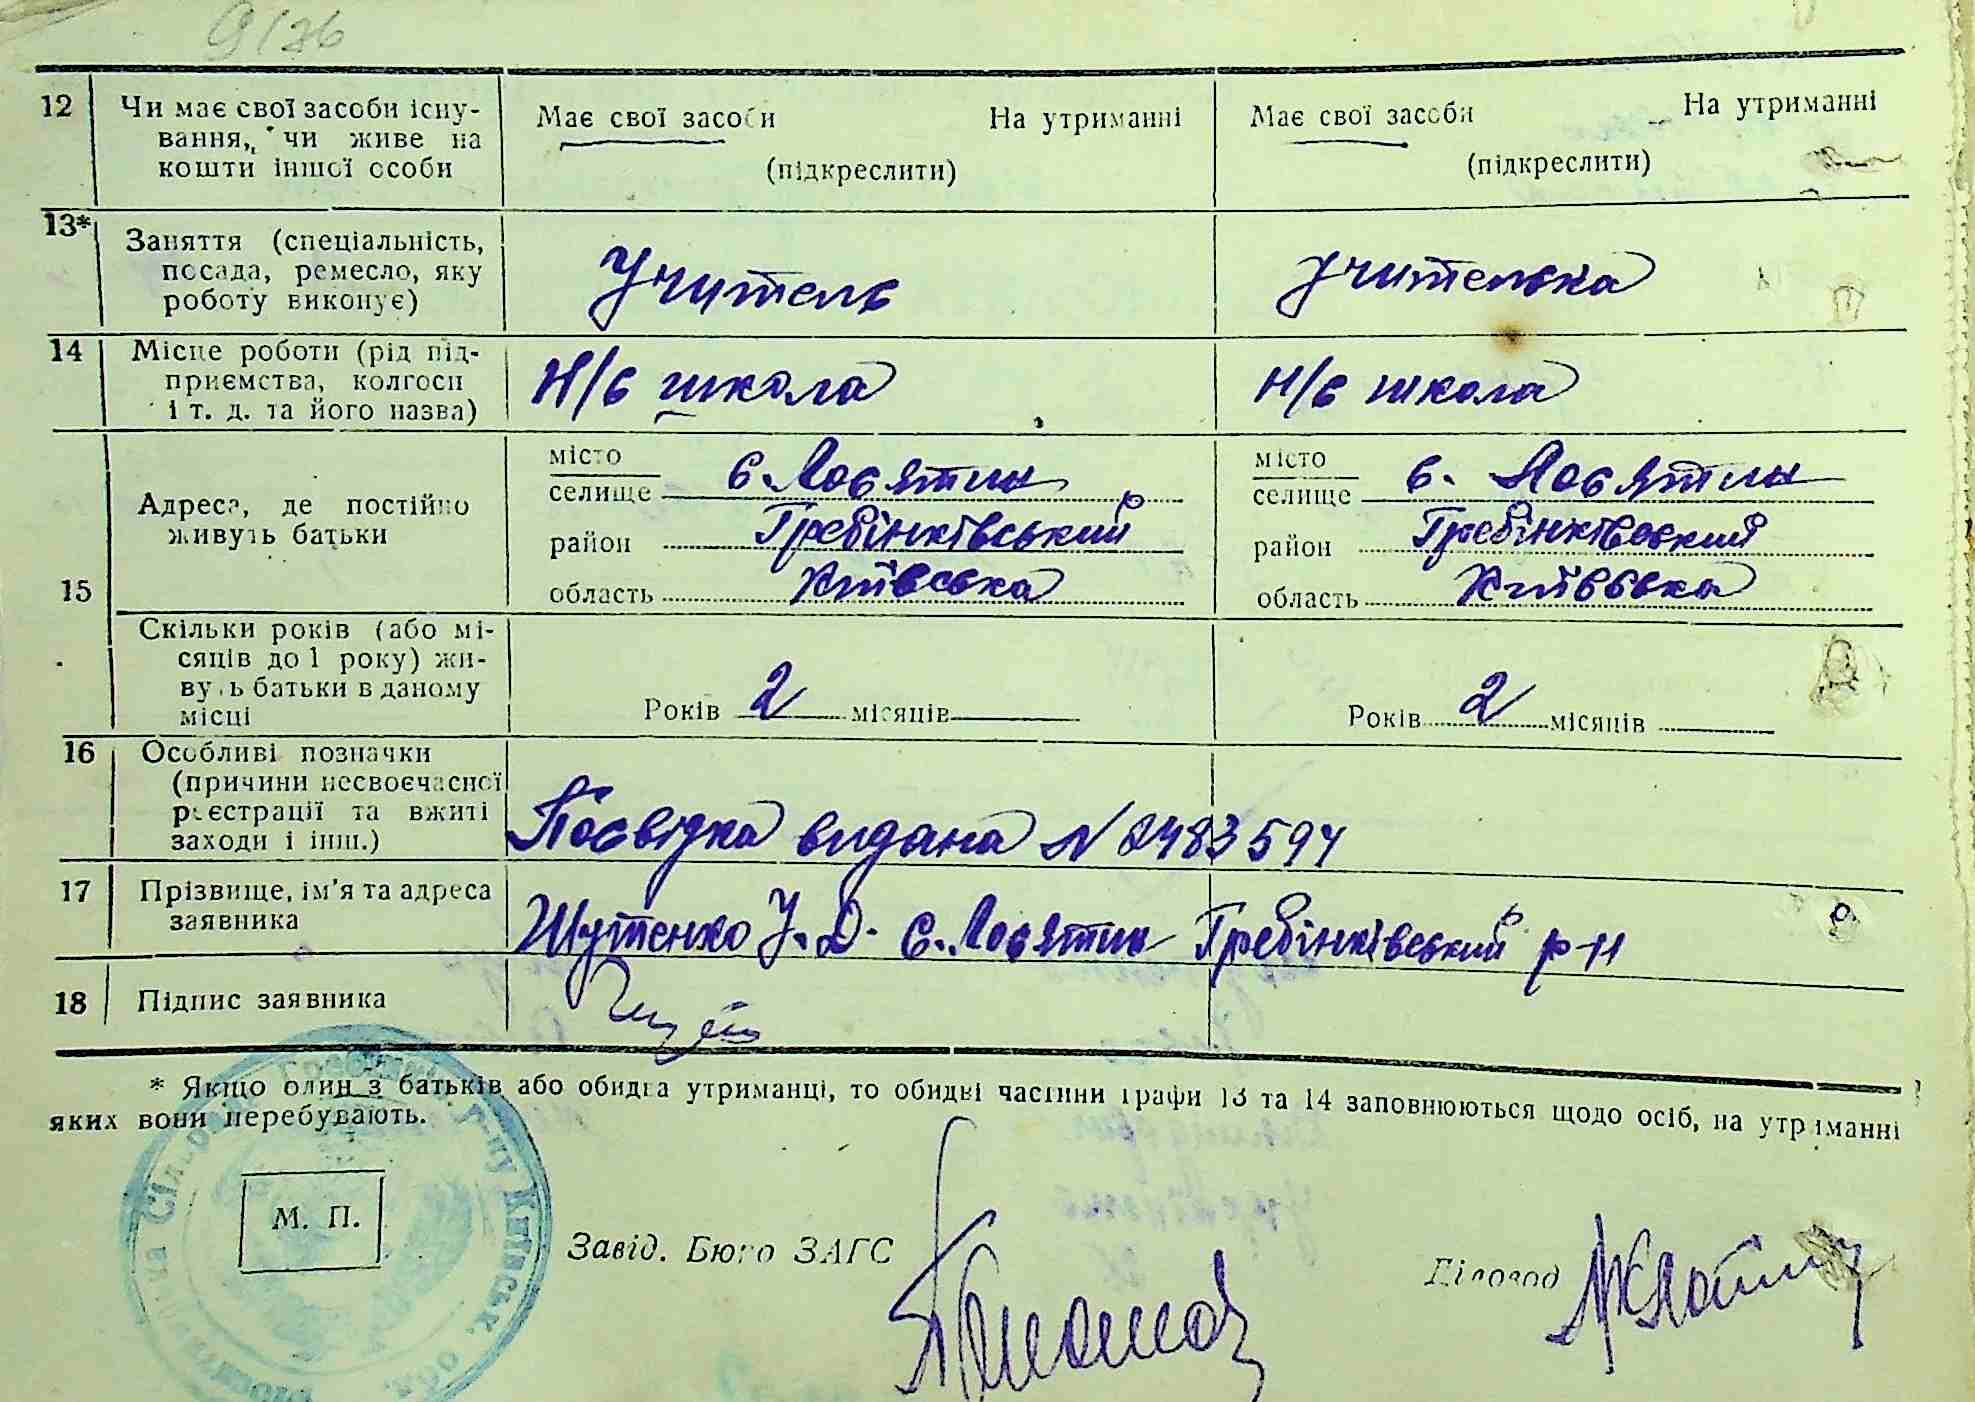 9/36
12 Чи має свої засоби існу-
вання, чи живе на
кошти іншої особи
Має свої засоби На утриманні
(підкреслити)
Має свої засоби На утриманні
(підкреслити)
13* Заняття (спеціальність,
посада, ремесло, яку
роботу виконує)
Учитель
учителька
14 Місце роботи (рід під-
приємства, колгосп
і т. д. та його назва)
Н/с школа
Н/с школа
15
Адреса, де постійно
живуть батьки
місто
селище с. Лосятин
район Гребінківський
область Київська
місто
селище с. Лосятин
район Гребінківський
область Київська
Скільки років (або мі-
сяців до 1 року) жи-
вуть батьки в даному
місці
Років 2 місяців
Років 2 місяців
16 Особливі позначки
(причини несвоєчасної
реєстрації та вжиті
заходи і інш.)
Посвідка видана N 2483594
17 Прізвище, ім'я та адреса
заявника
Шутенко У. Д. с. Лосятин Гребінківський р-н
18 Підпис заявника
* Якщо один з батьків або обидва утриманці, то обидві частини графи 13 та 14 заповнюються щодо осіб, на утриманні
яких вони перебувають.
М. П.
Завід. Бюро ЗАГС
Діловод